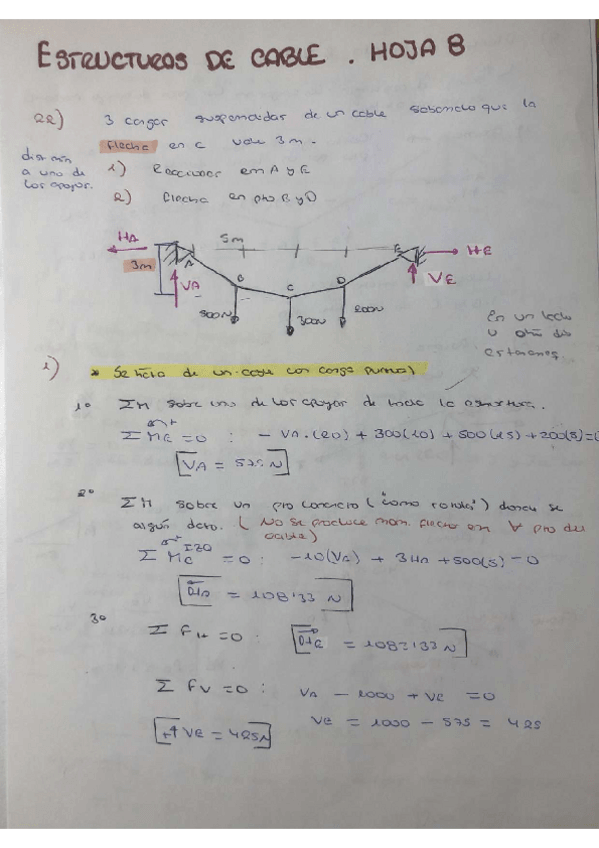 ESTRUCTURAS DE CABLE . HOJA 8
22) 3 cargas suspendidas de un cable sabiendo que la
flecha en C vale 3m.
a uno de
los apoyos.
1) Reacciones en A y E
2) Flecha en pto B y D
HA
3m
A
VA
5m
B
C
D
E
HE
VE
500N
300N
200N
En un lado
u otro
1)
* Se trata de un cable con carga puntual
1º ΣM sobre uno de los apoyos de toda la estructura.
Σ ME = 0 : - VA.(20) + 300(10) + 500(15) + 200(5) = 0
VA = 575 N
2º ΣM sobre un pto concreto ("como rótula") donde se
algún dato. ( No se produce mom. flector en ∀ pto del
cable)
Σ MC IZQ = 0 : -10(VA) + 3HA + 500(5) = 0
HA = 1083'33 N
3º
Σ FH = 0 : HE = 1083'33 N
Σ FV = 0 : VA - 1000 + VE = 0
VE = 1000 - 575 = 425
+↑ VE = 425N